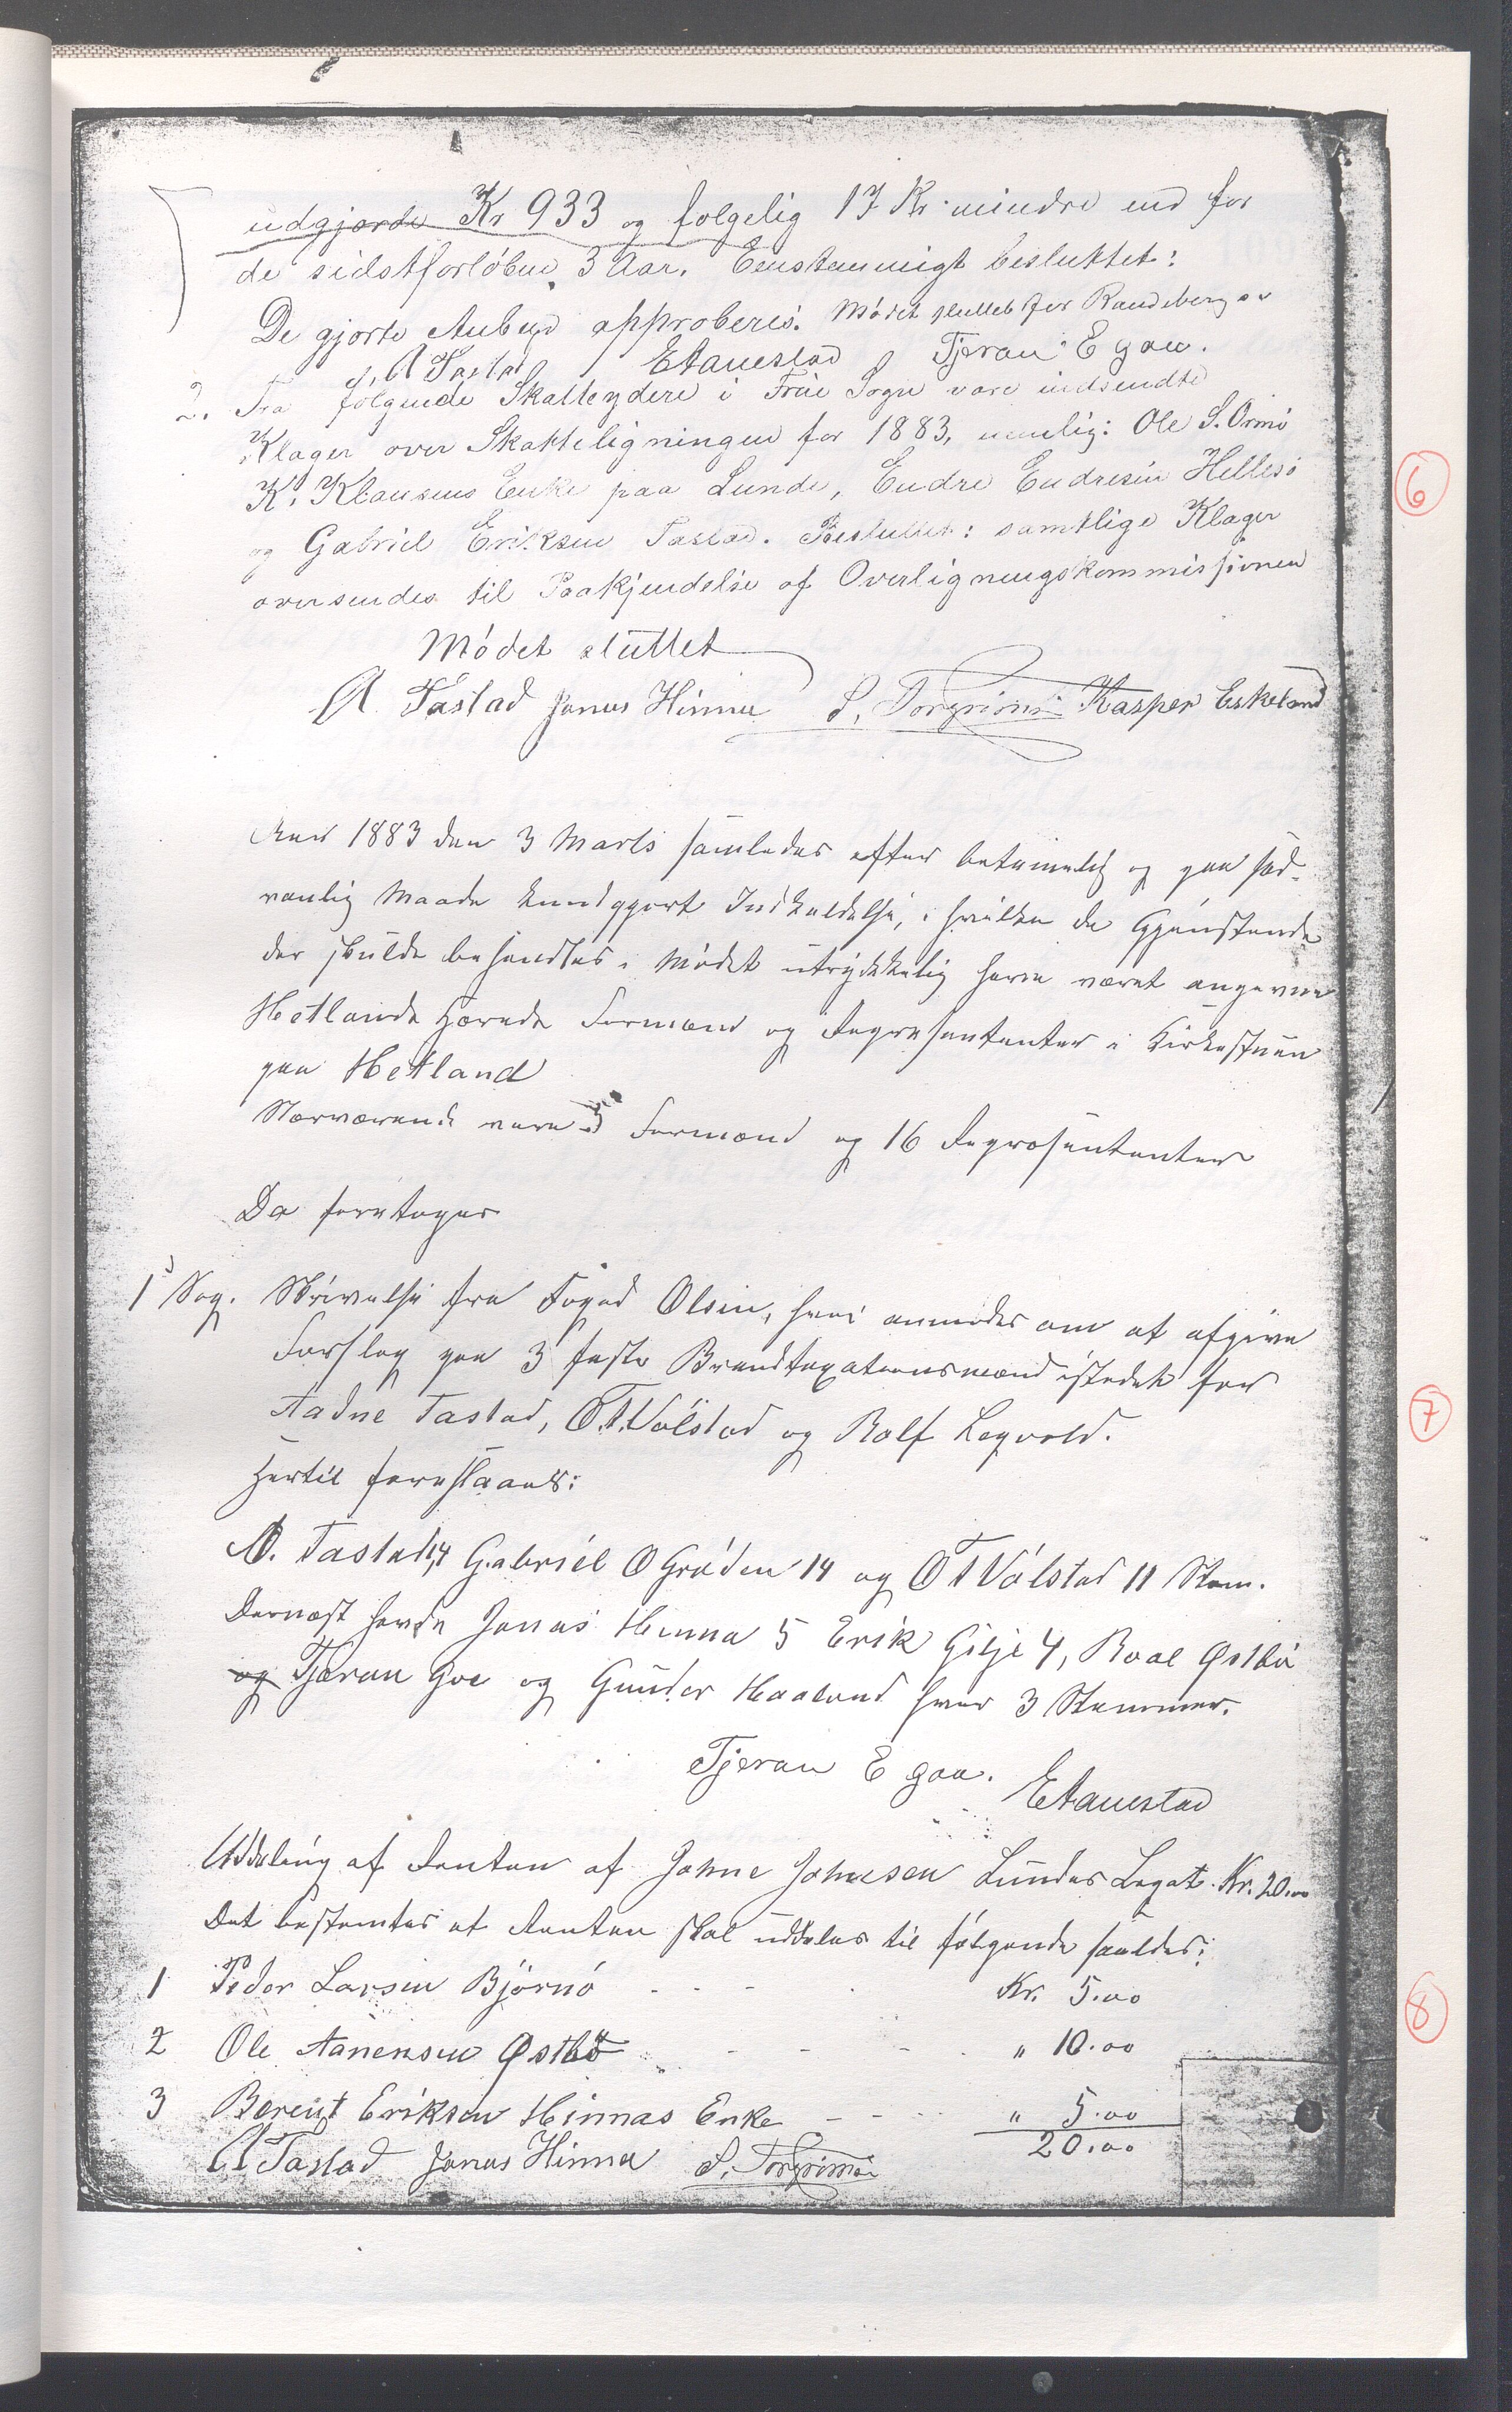 udgjorde Kr 933 og følgelig 17 Kr. mindre end for
de sidstforløbne 3 Aar. Eenstemmigt besluttet:
De gjorte Anbud approberes. Mødet sluttet for Randebergs
A Tastad Etanestad Tjeran E goa.
2. Fra følgende Skatteydere i Frue Sogn vare indsendte
Klager over Skatteligningen for 1883, nemlig: Ole S. Ormø
K. Klausens Enke paa Lunde, Endre Endresen Hellesø
og Gabriel Eriksen Tastad. Besluttet: samtlige Klager
oversendes til Paakjendelse af Overligningskommissionen
Mødet sluttet
A Tastad Jonas Hinna S. Torgrimsen Kasper Eskeland
Aar 1883 den 3 Marts samledes efter betimelig og paa sæd-
vanlig Maade kundgjort Indkaldelse, i hvilken de Gjenstande
der skulde behandles i Mødet utrykkelig have været angivne
Hetlands Herreds Formænd og Repræsentanter i Kirkestuen
paa Hetland
Nærværende vare 5 Formænd og 16 Repræsentanter
Da foretoges
1 Sag. Skrivelse fra Foged Olsen, hvori anmodes om at afgive
Forslag paa 3 faste Brandtaxationsmænd istedet for
Aadne Tastad, O.T. Vølstad og Rolf Legvold.
Hertil foreslaaes:
A. Tastad 14 Gabriel O Grøden 14 og O T Vølstad 11 Stem.
Dernæst havde Jonas Hinna 5 Erik Gilje 4, Roal Østbø
og Tjeran Goe og Gunder Haaland hver 3 Stemmer.
Tjeran E goa. Etanestad
Uddeling af Renten af Johne Johnesen Lundes Legat. Kr. 20.00
Det bestemtes at Renten skal uddeles til følgende saaledes:
1 Peder Larsen Bjørnø - - - Kr. 5.00
2 Ole Aanensen Østbø - - - " 10.00
3 Berent Eriksen Hinnas Enke - - - " 5.00
20.00
A Tastad Jonas Hinna S. Torgrimsen
6
7
8